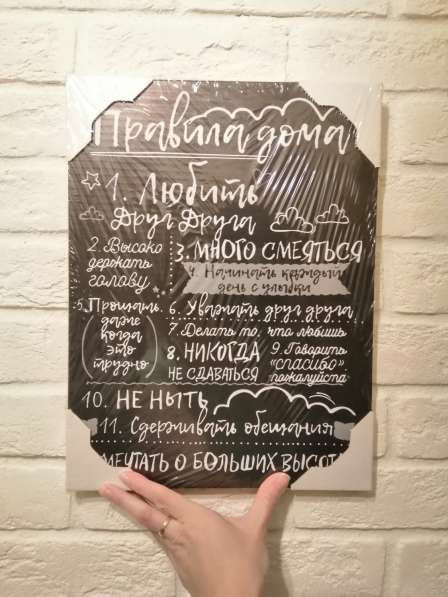 Правила дома
1. Любить
Друг Друга
2. Высоко
держать
голову
3. МНОГО СМЕЯТЬСЯ
4. Начинать каждый
день с улыбки
5. Прощать
даже
когда
это
трудно
6. Уважать друг друга
7. Делать то, что любишь
8. НИКОГДА
НЕ СДАВАТЬСЯ
9. Говорить
"спасибо",
пожалуйста
10. НЕ НЫТЬ
11. Сдерживать обещания
МЕЧТАТЬ О БОЛЬШИХ ВЫСОТ